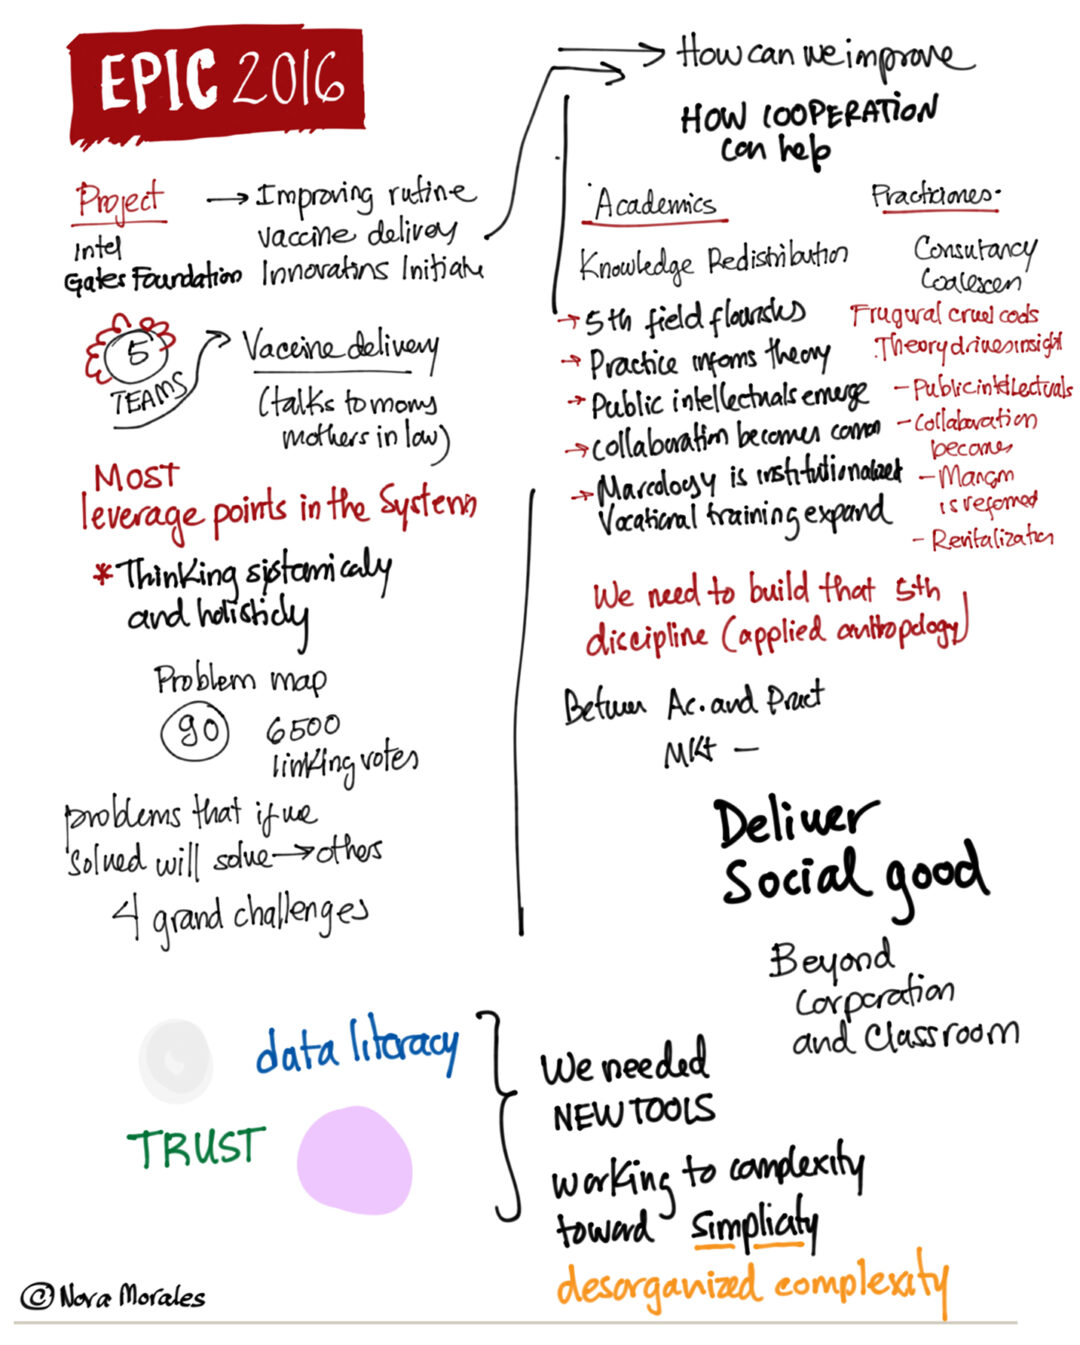 EPIC 2016
Project
Intel
Gates Foundation
→ Improving rutine
vaccine delivery
Innovations Initiate
5
TEAMS
Vaccine delivery
(talks to moms
mothers in law)
MOST
leverage points in the System
* Thinking sistemicaly
and holisticly
Problem map
90
6500
linking votes
problems that if we
solved will solve → others
4 grand challenges
data literacy
TRUST
© Nora Morales
How can we improve
HOW COOPERATION
can help
Academics
Knowledge Redistribution
→ 5th field flourishes
→ Practice informs theory
→ Public intellectuals emerge
→ collaboration becomes common
→ Marcology is institutionalized
Vocational training expand
Practiciones
Consultancy
Coalescen
Frugural cruel cods
Theory drives insight
- Public intellectuals
- Collaboration
becomes
is reformed
- Revitalization
We need to build that 5th
discipline (applied anthropology)
Between Ac. and Pract
Mkt —
Deliver
Social good
Beyond
Corporation
and Classroom
We needed
NEW TOOLS
working to complexity
toward simplicity
desorganized complexity